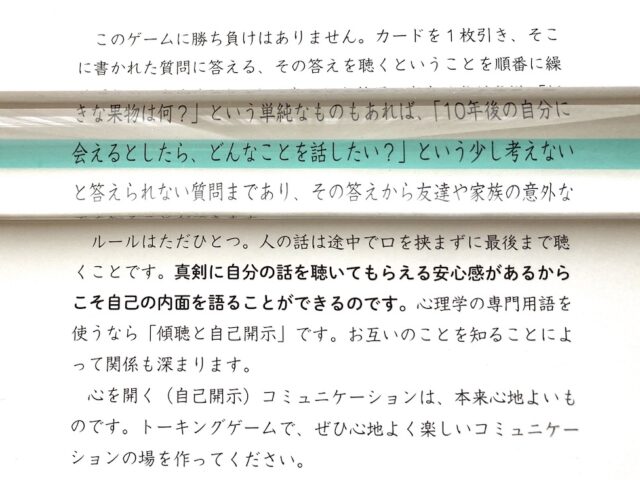 このゲームに勝ち負けはありません。カードを１枚引き、そこ
に書かれた質問に答える、その答えを聴くということを順番に繰
きな果物は何？」という単純なものもあれば、「10年後の自分に
会えるとしたら、どんなことを話したい？」という少し考えない
と答えられない質問まであり、その答えから友達や家族の意外な
ルールはただひとつ。人の話は途中で口を挟まずに最後まで聴
くことです。真剣に自分の話を聴いてもらえる安心感があるから
こそ自己の内面を語ることができるのです。心理学の専門用語を
使うなら「傾聴と自己開示」です。お互いのことを知ることによ
って関係も深まります。
心を開く（自己開示）コミュニケーションは、本来心地よいも
のです。トーキングゲームで、ぜひ心地よく楽しいコミュニケー
ションの場を作ってください。